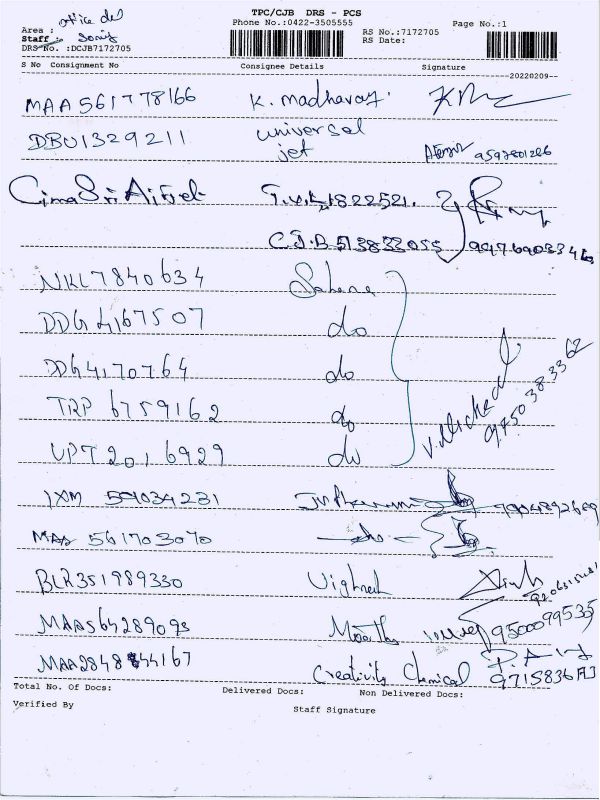 TPC/CJB DRS - PCS
Phone No.:0422-3505555 Page No.:1
Area : office del
Staff : Sony RS No.:7172705
DRS No. :DCJB7172705 RS Date:
S No Consignment No Consignee Details Signature
20220209
MAA 561778166 K. Madhavan
DBU1329211 universal
jet 9597801286
Cima Sri Airtel T.V.L 1822521.
C.J.B 513833055
NKL7840634 Sahana
DDG4167507 do
DDG4170764 do
TRP 6759162 do
UPT 2016929 do
V. Micheal
9750383362
IXM 594034231
MAA 561703070 do
BLR351989330 Vighnesh
MAA564289093 9500099535
MAA284844167 Creativity Chemical
Total No. Of Docs: Delivered Docs: Non Delivered Docs:
Verified By Staff Signature